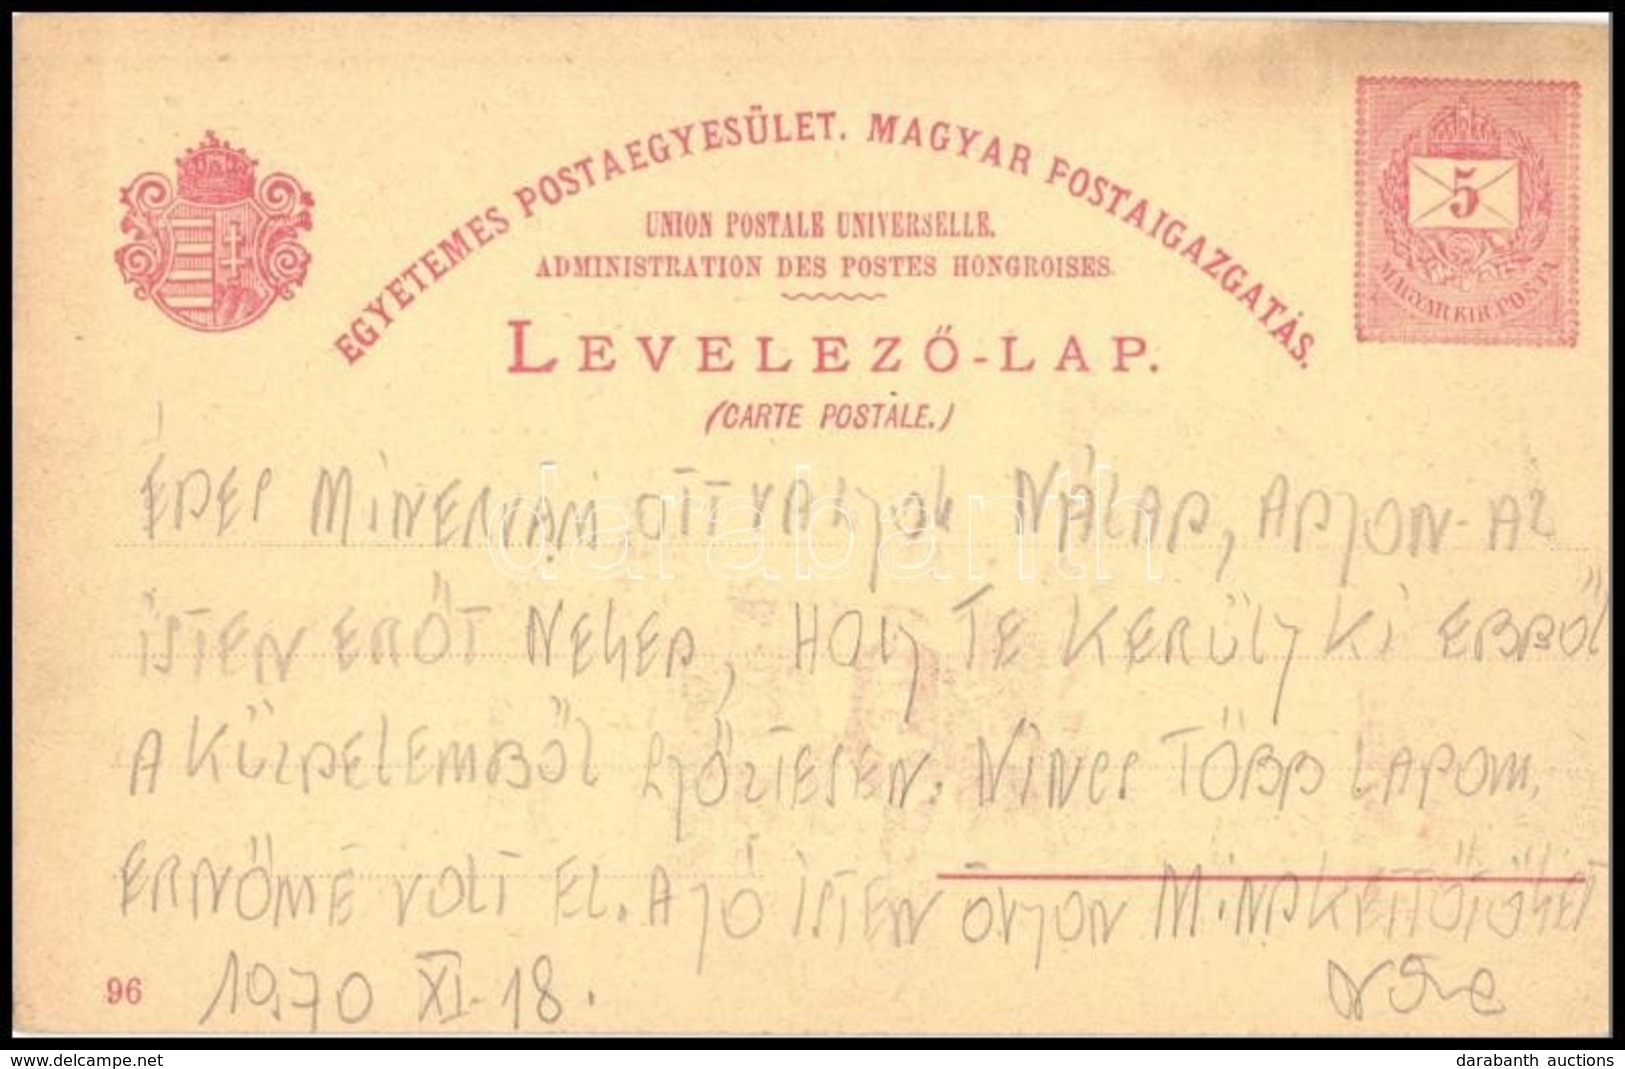 EGYETEMES POSTAEGYESÜLET. MAGYAR POSTAIGAZGATÁS.
UNION POSTALE UNIVERSELLE.
ADMINISTRATION DES POSTES HONGROISES.
LEVELEZŐ-LAP.
(CARTE POSTALE.)
5
MAGYAR KIR. POSTA
ÉDES MINERVÁM OTT VAGYOK NÁLAD, ADJON AZ
ISTEN ERŐT NEKED, HOGY TE KERÜLJ KI EBBŐL
A KÜZDELEMBŐL GYŐZTESEN. NINCS TÖBB LAPOM,
ERNŐMÉ VOLT EZ. A JÓ ISTEN ÓVJON MINDKETTŐTÖKET
96
1970 XI. 18.
darabanth
darabanth auctions
www.delcampe.net